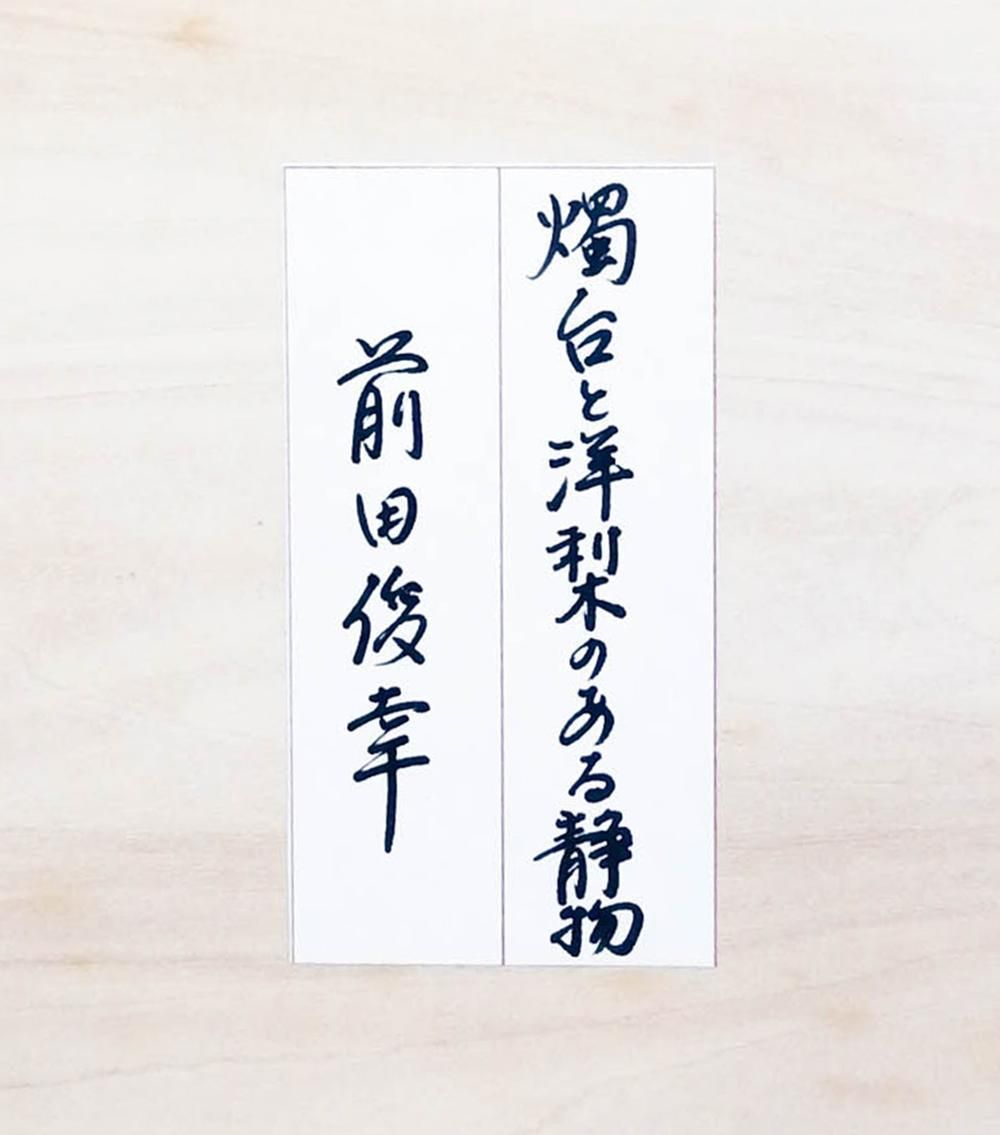 燭台と洋梨のある静物
前田俊幸